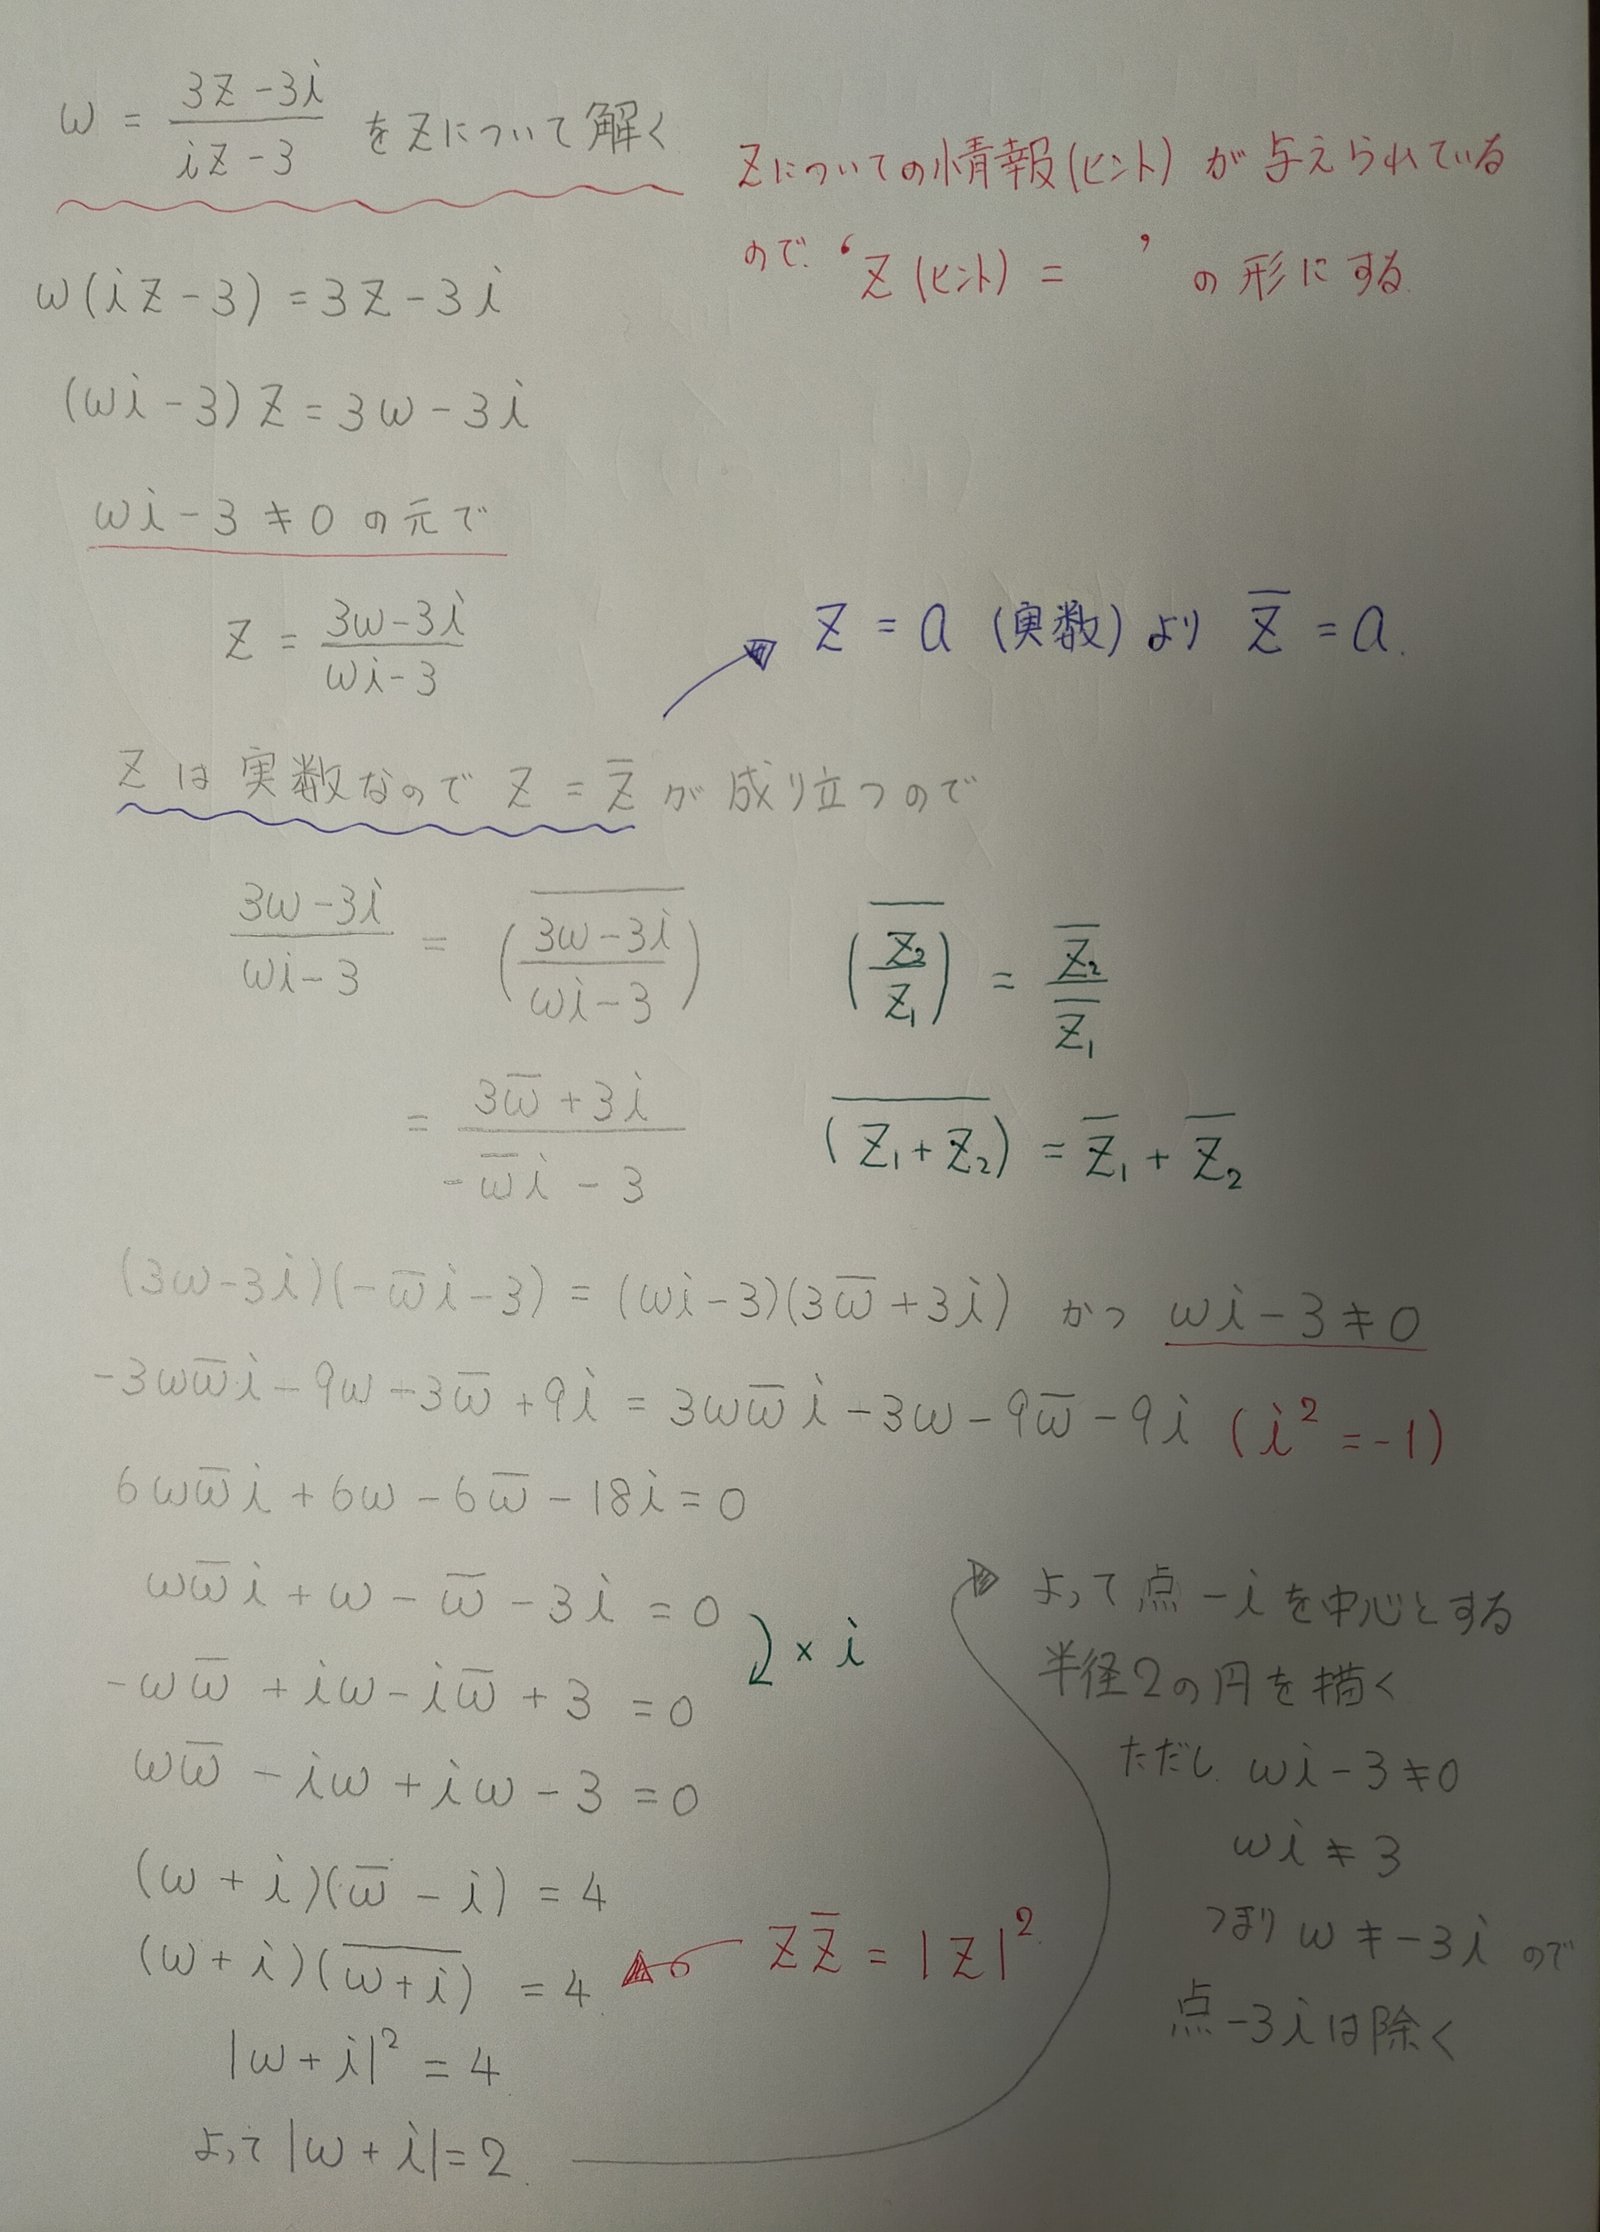 ω = (3z - 3i)/(iz - 3) をzについて解く
zについての情報(ヒント)が与えられている
ので ‘z (ヒント) =  ’ の形にする
ω(iz - 3) = 3z - 3i
(ωi - 3)z = 3ω - 3i
ωi - 3 ≠ 0 の元で
z = (3ω - 3i)/(ωi - 3)
z = a (実数) より z̅ = a.
zは実数なので z = z̅ が成り立つので
(3ω - 3i)/(ωi - 3) = \overline{((3ω - 3i)/(ωi - 3))}
\overline{(z₂/z₁)} = z̅₂/z̅₁
= (3ω̅ + 3i)/(-ω̅i - 3)
\overline{(z₁ + z₂)} = z̅₁ + z̅₂
(3ω - 3i)(-ω̅i - 3) = (ωi - 3)(3ω̅ + 3i) かつ ωi - 3 ≠ 0
-3ωω̅i - 9ω - 3ω̅ + 9i = 3ωω̅i - 3ω - 9ω̅ - 9i (i² = -1)
6ωω̅i + 6ω - 6ω̅ - 18i = 0
ωω̅i + ω - ω̅ - 3i = 0
× i
-ωω̅ + iω - iω̅ + 3 = 0
ωω̅ - iω + iω - 3 = 0
(ω + i)(ω̅ - i) = 4
(ω + i)(\overline{ω + i}) = 4
zz̅ = |z|²
|ω + i|² = 4
よって |ω + i| = 2
よって点 -i を中心とする
半径2の円を描く
ただし ωi - 3 ≠ 0
ωi ≠ 3
つまり ω ≠ -3i ので
点 -3i は除く